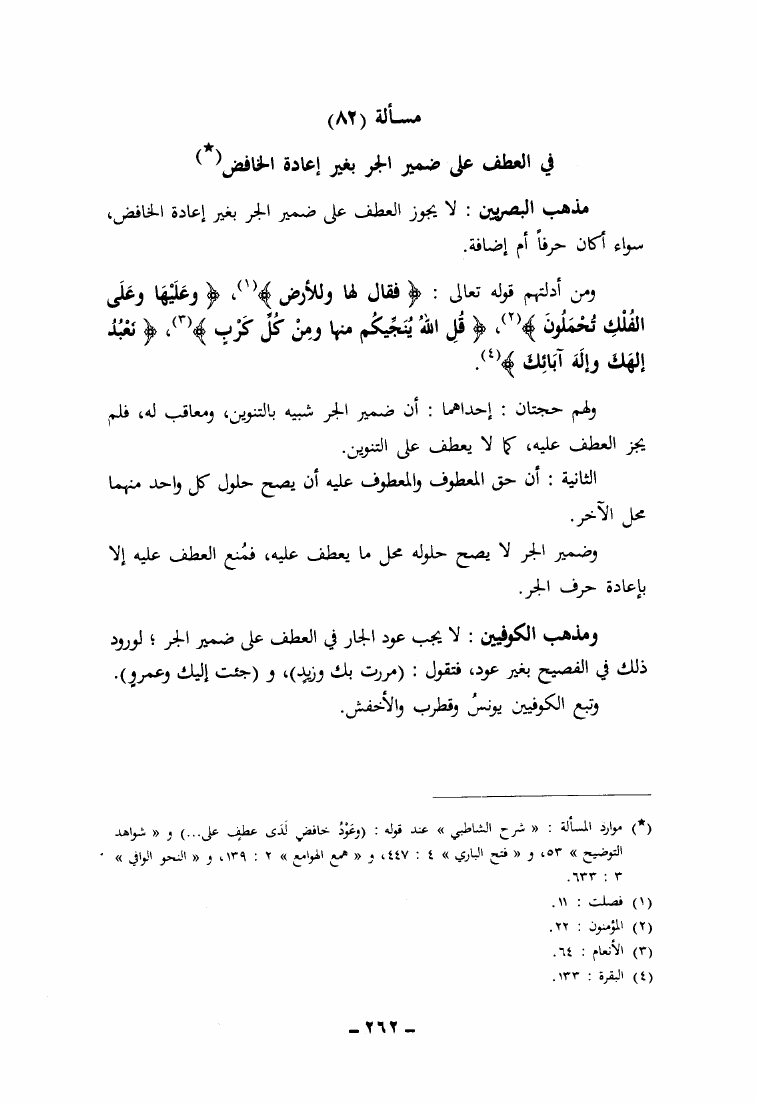 مسألة (٨٢)
في العطف على ضمير الجر بغير إعادة الخافض(*)
مذهب البصريين : لا يجوز العطف على ضمير الجر بغير إعادة الخافض،
سواء أكان حرفاً أم إضافة.
ومن أدلتهم قوله تعالى : ﴿ فقال لها وللأرض ﴾(١)، ﴿ وعَلَيْهَا وعَلَى
الفُلْكِ تُحْمَلُونَ ﴾(٢)، ﴿ قُلِ اللهُ يُنَجِّيكُم منها ومِنْ كُلِّ كَرْبٍ ﴾(٣)، ﴿ نَعْبُدُ
إلهَكَ وإلَهَ آبَائِكَ ﴾(٤).
ولهم حجتان : إحداهما : أن ضمير الجر شبيه بالتنوين، ومعاقب له، فلم
يجز العطف عليه، كما لا يعطف على التنوين.
الثانية : أن حق المعطوف والمعطوف عليه أن يصح حلول كل واحد منهما
محل الآخر.
وضمير الجر لا يصح حلوله محل ما يعطف عليه، فمُنع العطف عليه إلا
بإعادة حرف الجر.
ومذهب الكوفيين : لا يجب عود الجار في العطف على ضمير الجر ؛ لورود
ذلك في الفصيح بغير عود، فتقول : (مررت بك وزيدٍ)، و (جئت إليك وعمروٍ).
وتبع الكوفيين يونسُ وقطرب والأخفش.
(*) موارد المسألة : « شرح الشاطبي » عند قوله : (وعَوْدُ خافضٍ لَدَى عطفٍ على...) و « شواهد
التوضيح » ٥٣، و « فتح الباري » ٤ : ٤٤٧، و « همع الهوامع » ٢ : ١٣٩، و « النحو الوافي »
٣ : ٦٣٣.
(١) فصلت : ١١.
(٢) المؤمنون : ٢٢.
(٣) الأنعام : ٦٤.
(٤) البقرة : ١٣٣.
ـ ٢٦٢ ـ